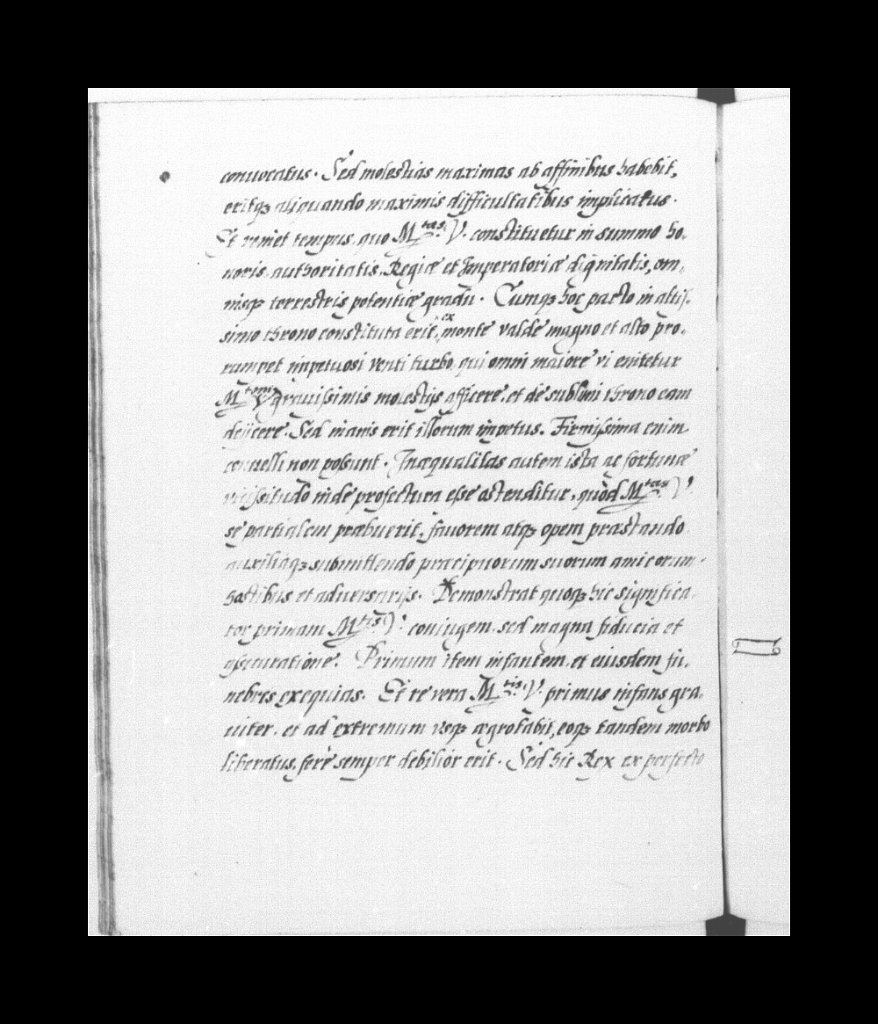 convocatus. Sed molestias maximas ab affinibus habebit,
eritqꝫ aliquando maximis difficultatibus implicatus.
Et veniet tempus, quo M.tas V. constituetur in summo ho,
noris, authoritatis, Regiæ et Imperatoriæ dignitatis, om,
nisqꝫ terrestris potentiæ gradu. Cumqꝫ hoc pacto in altis,
simo throno constituta erit, ex monte valde magno et alto pro,
rumpet impetuosi venti turbo, qui omni maiore vi enitetur
M.tem V. gravissimis molestijs afficere, et de sublimi throno eam
deijcere. Sed inanis erit illorum impetus. Firmissima enim
convelli non possunt. Inæqualitas autem ista ac fortunæ
vicissitudo inde profectura esse ostenditur, quòd M.tas V.
se partialem præbuerit, favorem atqꝫ opem præstando
auxiliaqꝫ submittendo præcipuorum suorum amicorum
hostibus et adversarijs. Demonstrat quoqꝫ hic significa,
tor primam M.tis V. coniugem, sed magna fiducia et
Primum item infantem, et eiusdem fu,
nebres exequias. Et re vera M.tis V. primus infans gra,
viter, et ad extremum usqꝫ ægrotabit, eoqꝫ tandem morbo
liberatus, ferè semper debilior erit. Sed hic Rex ex perfecto